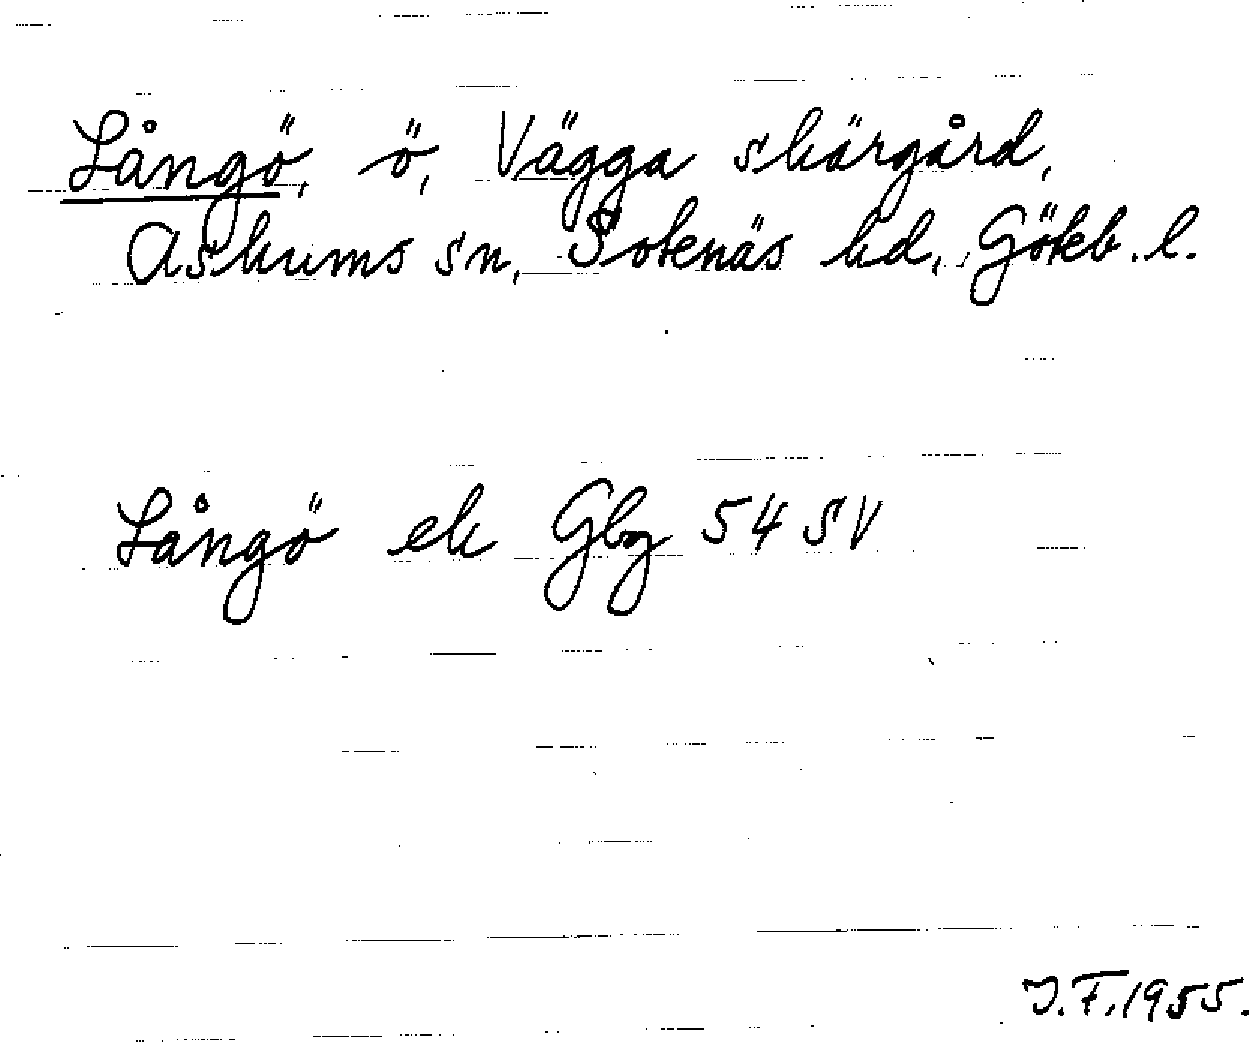 Långö, ö, Vägga skärgård,
Askums sn, Sotenäs hd, Göteb. l.
Långö ek Gbg 54 SV
J.F. 1955.